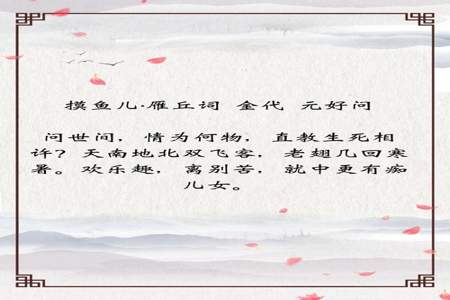 摸鱼儿·雁丘词 金代 元好问
问世间，情为何物，直教生死相
许？天南地北双飞客，老翅几回寒
暑。欢乐趣，离别苦，就中更有痴
儿女。